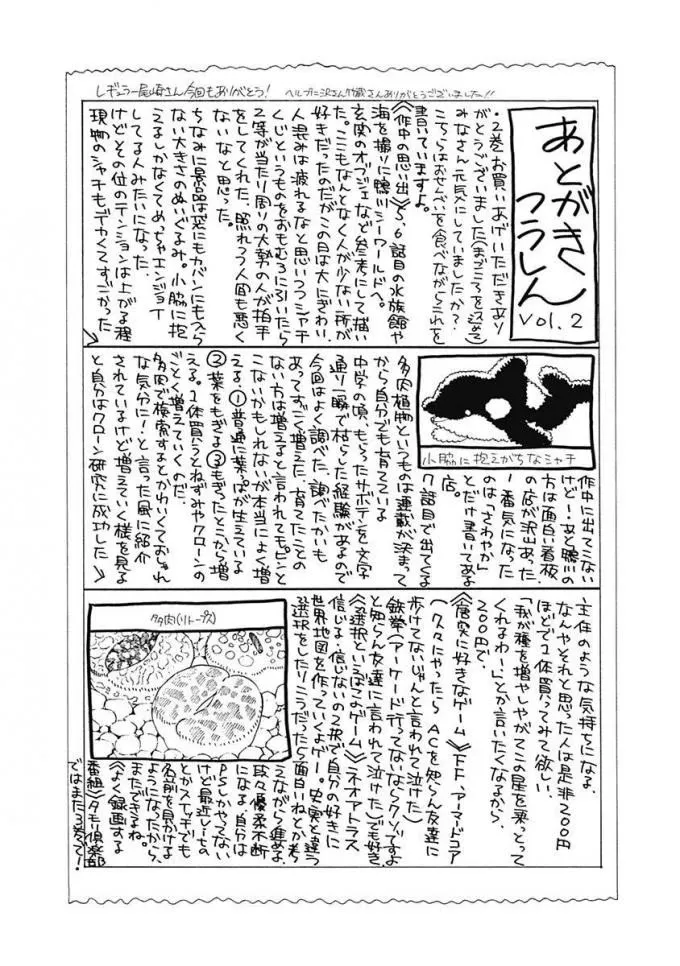 レギュラー尾崎さん今回もありがとう！ ヘルプに沢さん竹蔵さんありがとうございました!!
あとがき
つうしん
vol.2
・2巻お買いあげいただきあり
がとうございました(まごころを込めて)
みなさん元気にしていましたか？
こちらはおせんべいを食べながらこれを
書いていますよ。
《作中の思い出》5、6話目の水族館や
海を撮りに鴨川シーワールドへ。
玄関のオブジェなど参考にして描い
た。ここもなんとなく人が少ない所が
好きだったのだがこの日は大にぎわい。
人混みは疲れるなと思いつつシャチ
くじというものをおもむろに引いたら
2等が当たり周りの大勢の人が拍手
をしてくれた。照れつつ人間も悪く
ないなと思った。
ちなみに景品は楽にもカバンにも入ら
ない大きさのぬいぐるみ。小脇に抱
えるしかなくてめっちゃエンジョイ
してる人みたいになった
けどその位のテンションは上がる程
現物のシャチもデカくてすごかった
小脇に抱えがちなシャチ
作中に出てこない
けど！あと鴨川の
方は面白い看板
の店が沢山あった。
一番気になった
のは「さわやか」
とだけ書いてある
店。
7話目で出てくる
多肉植物というものは連載が決まって
から自分でも育てている
中学の頃、もらったサボテンを文字
通り一瞬で枯らした経験があるので
今回はよく調べた、調べたかいも
あってすごく増えた。育てたことの
ない方は増えると言われてもピンと
こないかもしれないが本当によく増
える。①普通に葉っぱが生えている
②葉をもぎる③もぎったとこから増
える。1体買うとねずみやクローンの
ごとく増えていくのだ。
多肉で検索するとかわいくておしゃれ
な気分に！と言った風に紹介
されているけど増えていく様を見る
と自分はクローン研究に成功した
主任のような気持ちになる。
なんやそれと思った人は是非200円
ほどで1体買ってみて欲しい。
「我が種を増やしやがてこの星を乗っとって
くれるわー」とか言いたくなるから。
200円で。
《唐突に好きなゲーム》FF、アーマードコア
(久々にやったらACを知らん友達に
歩けてないじゃんと言われて泣けた)
鉄拳(アーケード行ってないならクソですよ
と知らん友達に言われて泣けた)でも好き。
《選択といえばこのゲーム》《ネオアトラス
信じる・信じないの2択で自分の好きに
世界地図を作っていくよゲー。史実と違う
選択をしたりこうだったら面白いねとか考
えながら進める。
段々優柔不断
になる。自分は
PSしかやってない
けど最近レーモの
とかスイッチでも
名前を見かける
ようになったから、
またできるね。
《よく録画する
番組》タモリ倶楽部
ではまた3巻で！
多肉(リトープス)